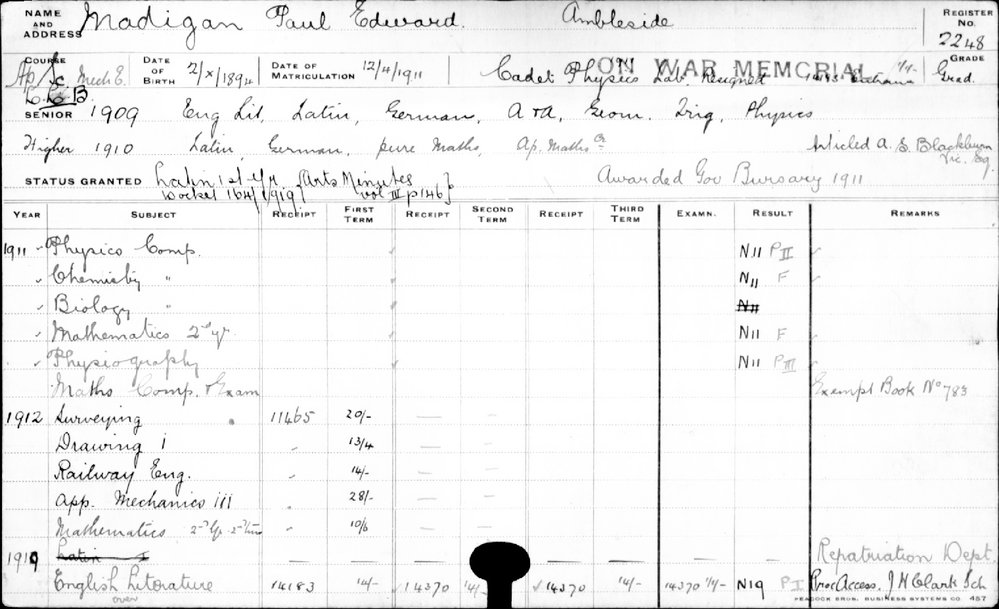 NAME AND ADDRESS Madigan Paul Edward. Ambleside REGISTER No. 2248
COURSE Ap/Sc Mech E. DATE OF BIRTH 2/X/1894 DATE OF MATRICULATION 12/4/1911 Cadet Physics Lab. Resigned ON WAR MEMORIAL 1/- GRADE Grad.
LLB
SENIOR 1909 Eng Lit, Latin, German, A & A, Geom. Trig, Physics
Higher 1910 Latin, German, pure Maths, Ap. Maths Cr Articled A. S. Blackburn Vic. Sq.
STATUS GRANTED Latin 1st Yr {Arts Minutes Awarded Gov Bursary 1911
Docket 164/1919} vol III p146}
YEAR SUBJECT RECEIPT FIRST TERM RECEIPT SECOND TERM RECEIPT THIRD TERM EXAMN. RESULT REMARKS
1911 ✓ Physics Comp. ✓ N11 P II ✓
✓ Chemistry " ✓ N11 F ✓
✓ Biology " ✓ N11
✓ Mathematics 2nd yr ✓ N11 F ✓
✓ Physiography ✓ N11 P III ✓
Maths Comp. & Exam Exempt Book No 783
1912 Surveying 11465 20/- — —
Drawing I " 13/4 — —
Railway Eng. " 14/- — —
App. Mechanics iii " 28/- — —
Mathematics 2nd Yr 2nd Time " 10/6 — —
1919 Latin I — — — — — — — — Repatriation Dept.
English Literature 14183 14/- ✓14370 14/- ✓14370 14/- 14370 1/- N19 P I Proc Access. J H Clark Sch
over
PEACOCK BROS. BUSINESS SYSTEMS CO. 457